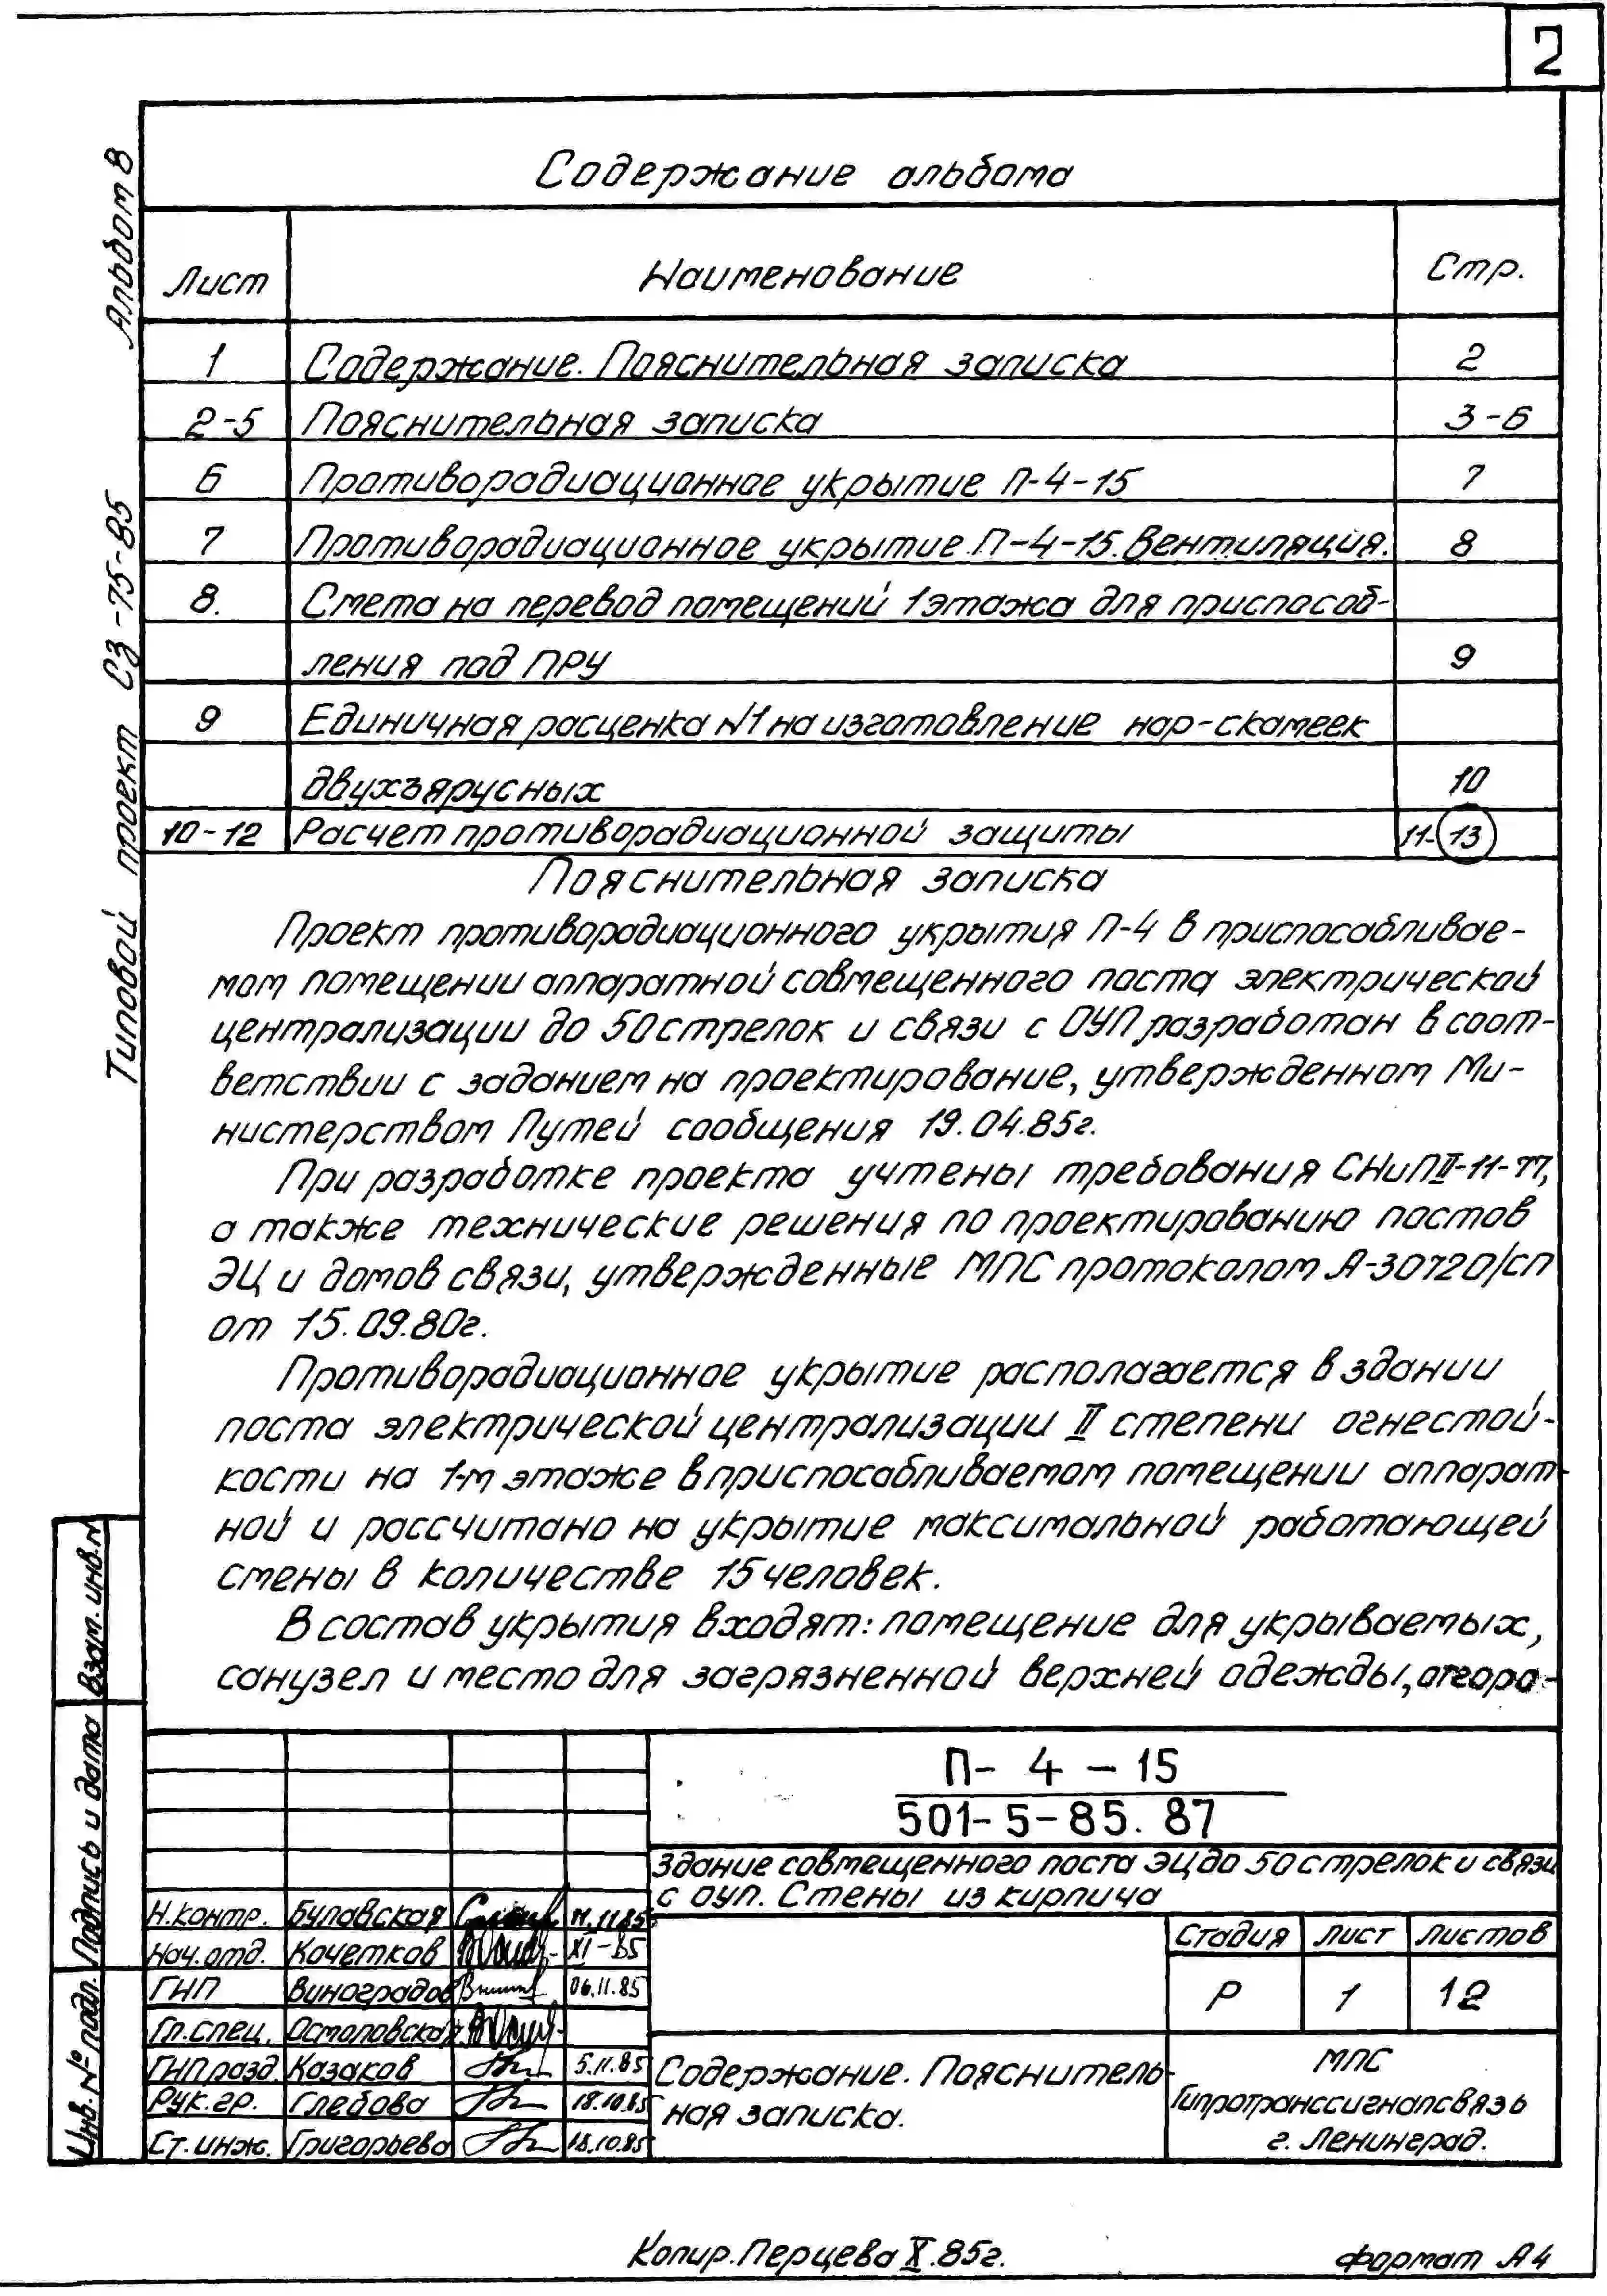 2
Альбом 8
Типовой проект СЗ-75-85
Содержание альбома
Лист Наименование Стр.
1 Содержание. Пояснительная записка 2
2-5 Пояснительная записка 3-6
6 Противорадиационное укрытие П-4-15 7
7 Противорадиационное укрытие П-4-15. Вентиляция. 8
8. Смета на перевод помещений 1 этажа для приспособ-
ления под ПРУ 9
9 Единичная расценка №1 на изготовление нар-скамеек
двухъярусных 10
10-12 Расчет противорадиационной защиты 11-13
Пояснительная записка
Проект противорадиационного укрытия П-4 в приспосабливае-
мом помещении аппаратной совмещенного поста электрической
централизации до 50 стрелок и связи с ОУП разработан в соот-
ветствии с заданием на проектирование, утвержденном Ми-
нистерством Путей сообщения 19.04.85г.
При разработке проекта учтены требования СНиП II-11-77,
а также технические решения по проектированию постов
ЭЦ и домов связи, утвержденные МПС протоколом А-30720/СП
от 15.09.80г.
Противорадиационное укрытие располагается в здании
поста электрической централизации II степени огнестой-
кости на 1-м этаже в приспосабливаемом помещении аппарат-
ной и рассчитано на укрытие максимальной работающей
смены в количестве 15 человек.
В состав укрытия входят: помещение для укрываемых,
санузел и место для загрязненной верхней одежды, отгоро-
Взам. инв. №
Подпись и дата
Инв. № подл.
П-4-15
501-5-85.87
Здание совмещенного поста ЭЦ до 50 стрелок и связи
с ОУП. Стены из кирпича
Н.контр. Булавская 11.11.85
Нач.отд. Кочетков XI-85
ГИП Виноградов 06.11.85
Гл.спец. Остоловская
ГИП разд. Казаков 5.11.85
Рук.гр. Глебова 18.10.85
Ст.инж. Григорьева 18.10.85
Стадия Лист Листов
Р 1 12
Содержание. Пояснитель-
ная записка.
МПС
Гипротранссигналсвязь
г. Ленинград.
Копир. Перцева X.85г. Формат А4